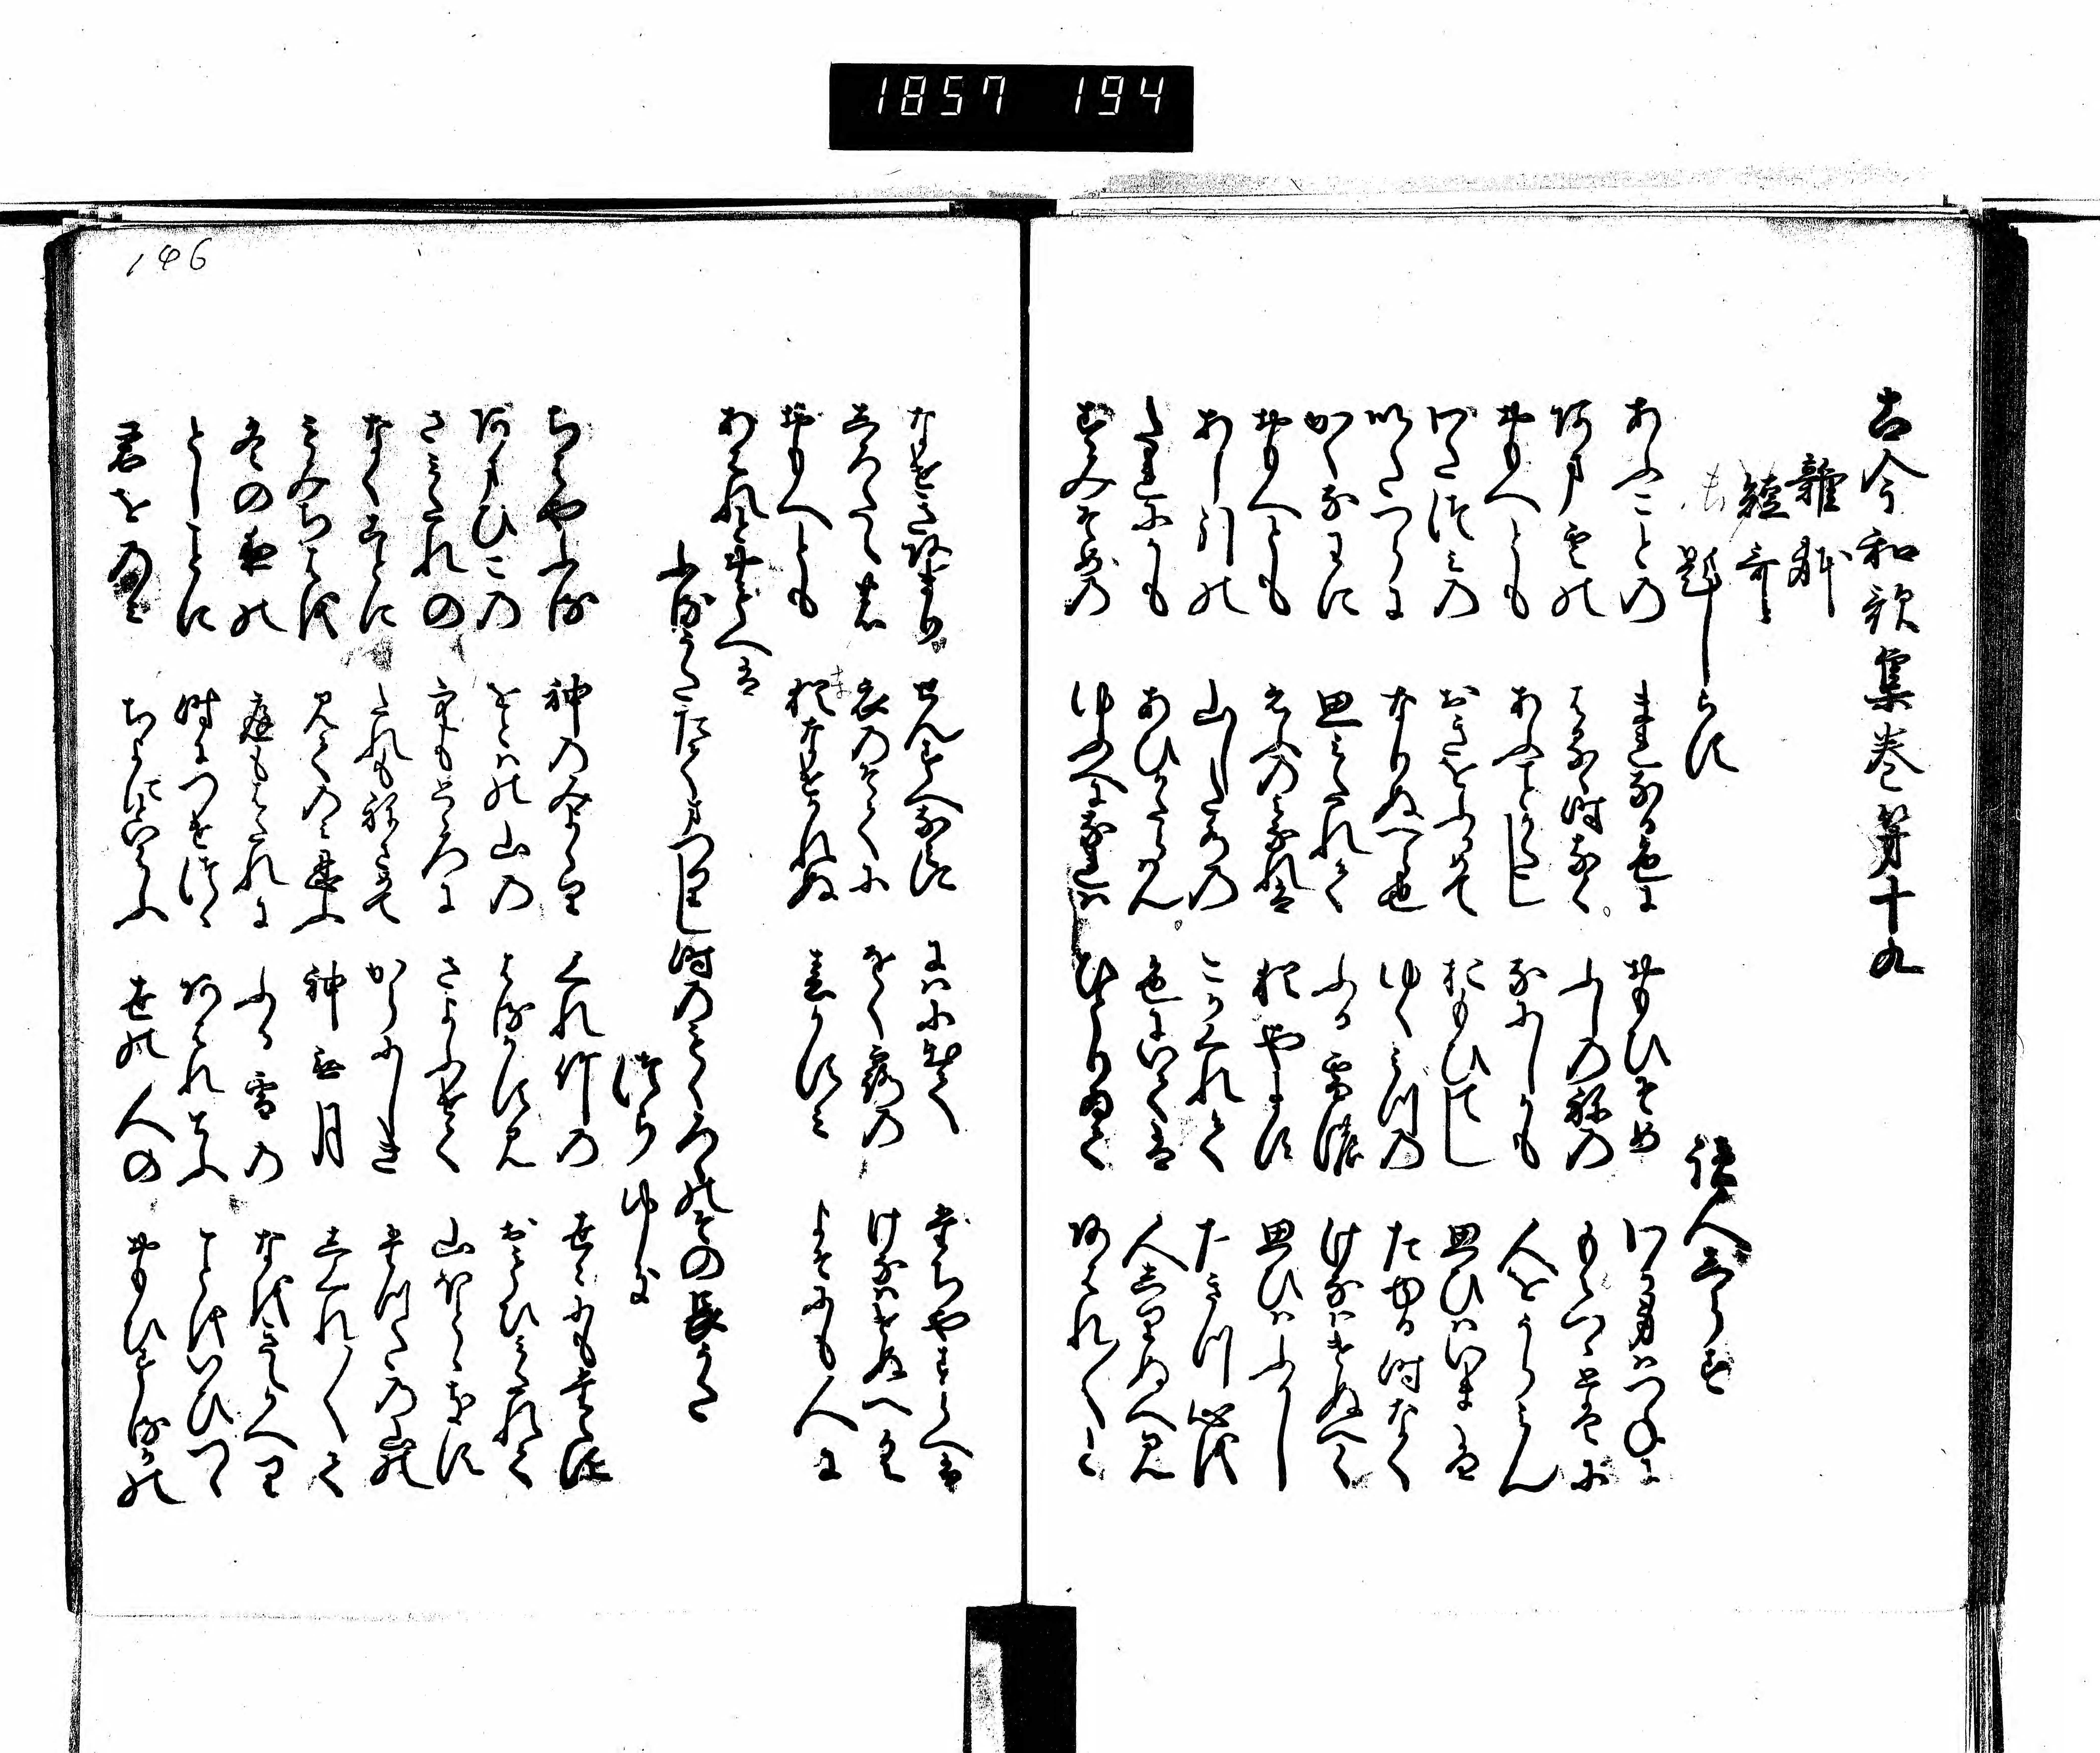 1857 194
古今和歌集巻第十九
雑躰
短哥
題しらす 読人しらす
あふことの まれなる色に おもひそめ わか身はつねに
あま雲の はるゝ時なく ふしの祢の もえつゝとはに
おもへとも あふことかたし なにしかも 人をうらみん
わたつみの おきをふかめて おもひてし 思ひはいまは
いたつらに なりぬへら也 ゆくみつの たゆる時なく
かくなわに 思みたれて ふる雪の けなはけぬへく
おもへとも えふの身なれは 猶やます 思ひはふかし
あし引の 山した水の こかくれて たきつ心を
たれにかも あひかたらはん 色にいては 人しりぬへみ
すみそめの ゆふへになれは ひとりゐて あはれ／＼と
なけきあまり せんすへなみに にはにいてゝ たちやすらへは
しろたへの 衣のそてに をく露の けなはけぬへく
おもへとも 猶なけかれぬ 春かすみ よそにも人に
あはんとおもへは
ふるうたたてまつりし時のもくろくのその長うた
つらゆき
ちはやふる 神のみよより くれ竹の 世ゝにもたえす
あまひこの をとはの山の はるかすみ おもひみたれて
さみたれの 空もとゝろに さよふけて 山ほとゝきす
なくことに たれもねさめて からにしき たつたの山の
もみちはを 見てのみ忍ふ 神無月 しくれ／＼て
冬の夜の 庭もはたれに ふる雪の なをきえかへり
としことに 時につけつゝ あはれてふ ことをいひつゝ
君をのみ ちよにといはふ 世の人の おもひするかの